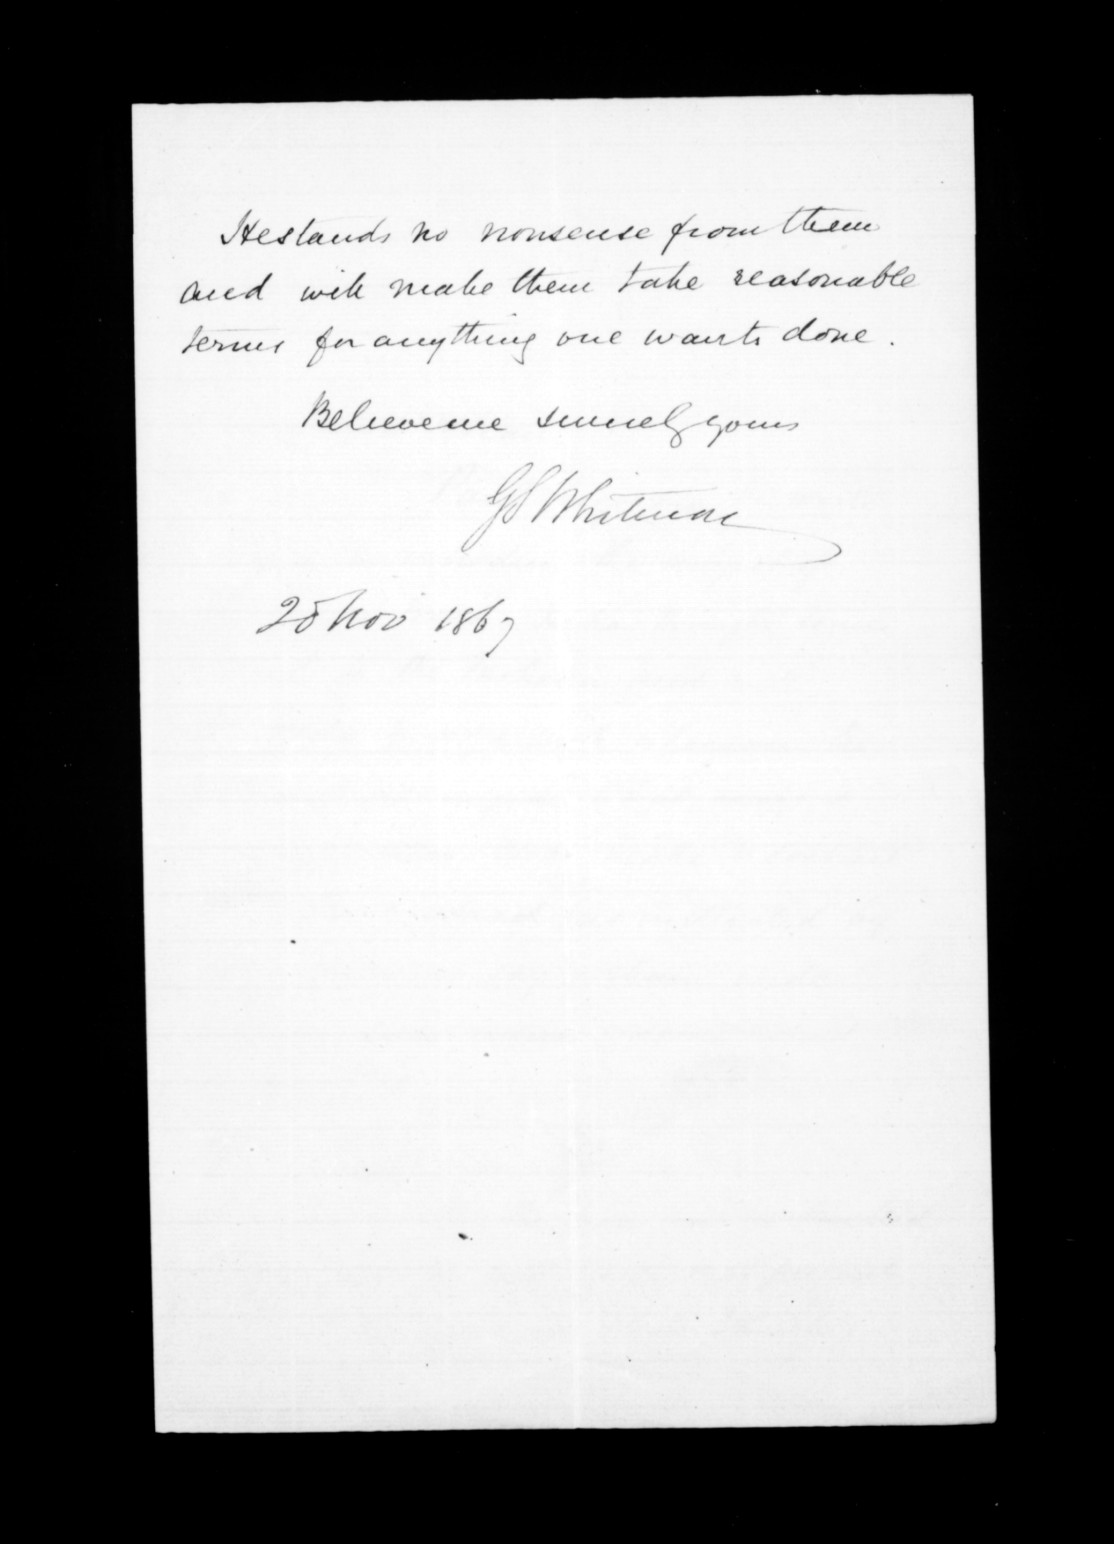 He stands no nonsense from them
and will make them take reasonable
terms for anything one wants done.
Believe me sincerely yours
GS Whitmore
Nov 1867